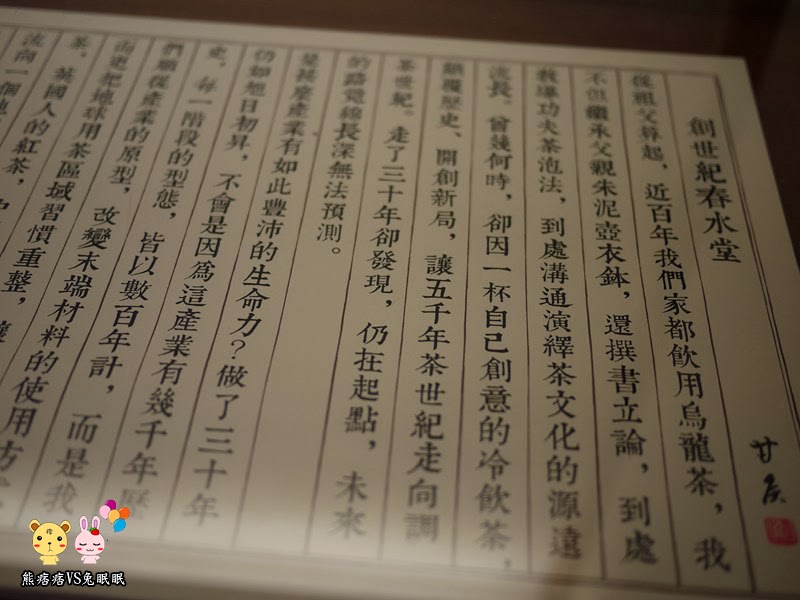 創世紀春水堂
甘
從祖父算起，近百年我們家都飲用烏龍茶，我
不但繼承父親朱泥壺衣鉢，還撰書立論，到處
教導功夫茶泡法，到處溝通演繹茶文化的源遠
流長。曾幾何時，卻因一杯自己創意的冷飲茶，
顛覆歷史、開創新局，讓五千年茶世紀走向調
茶世紀。走了三十年卻發現，仍在起點，未來
的路竟綿長深無法預測。
是甚麼產業有如此豐沛的生命力？做了三十年
仍如旭日初昇，不會是因為這產業有幾千年歷
史，每一階段的型態，皆以數百年計，而是我
們順從產業的原型，改變末端材料的使用方式
而更把地球用茶區域習慣重整，讓
茶，英國人的紅茶，
流向一個
熊痞痞VS兔眠眠